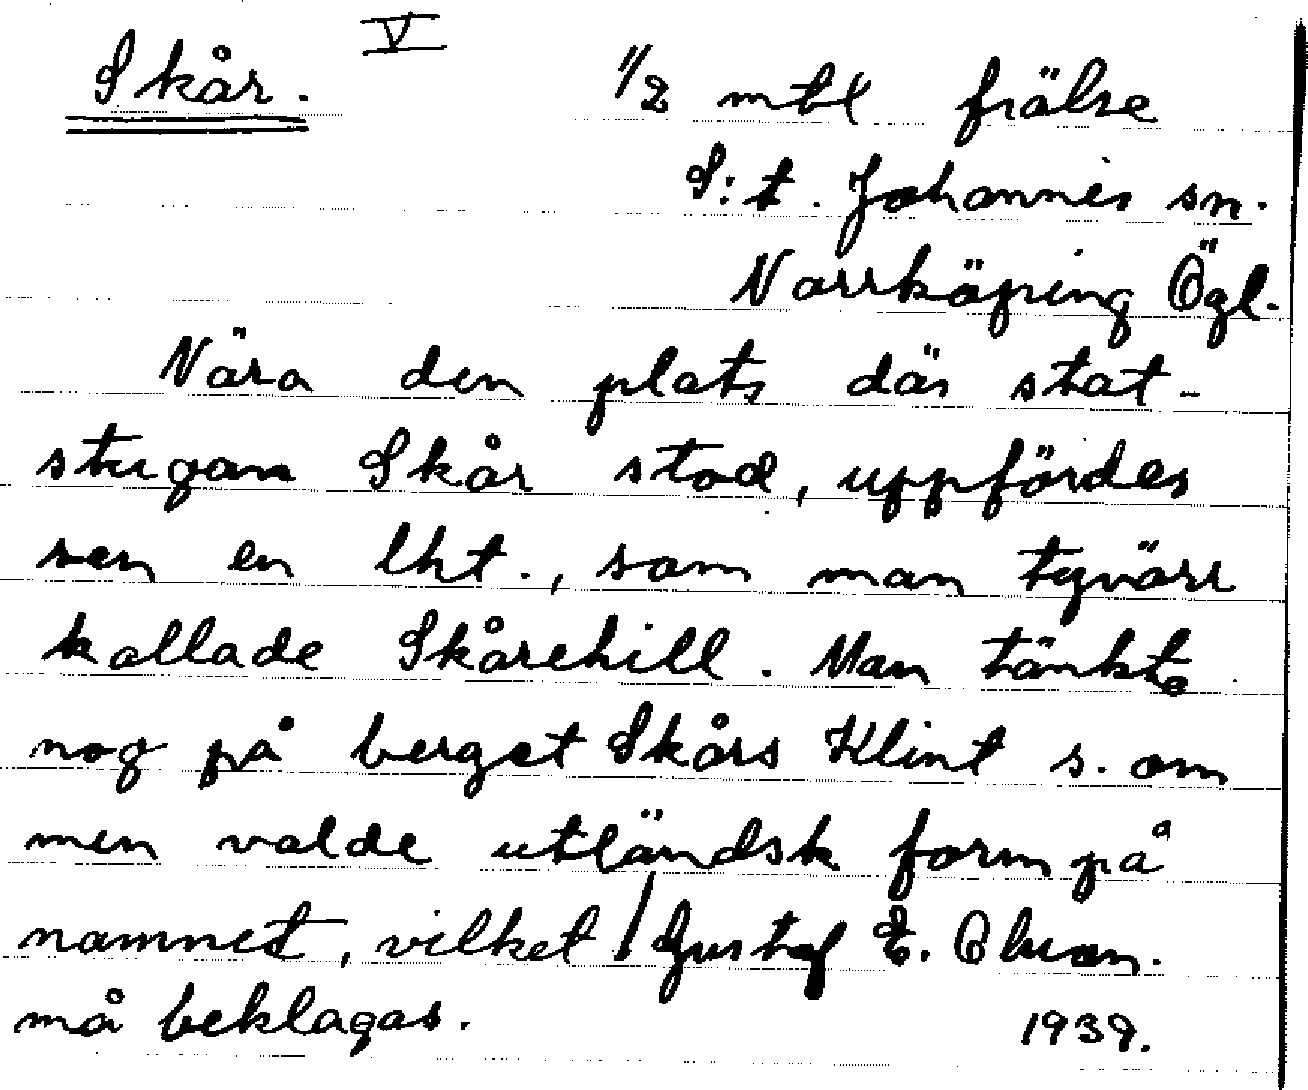 Skår. V 1/2 mtl frälse
S:t. Johannes sn.
Norrköping Ögl.
Nära den plats där stat-
stugan Skår stod, uppfördes
sen en lht., som man tyvärr
kallade Skårehill. Man tänkte
nog på berget Skårs Klint s. om
men valde utländsk form på
namnet, vilket / Gustaf E. Olsson.
må beklagas. 1939.